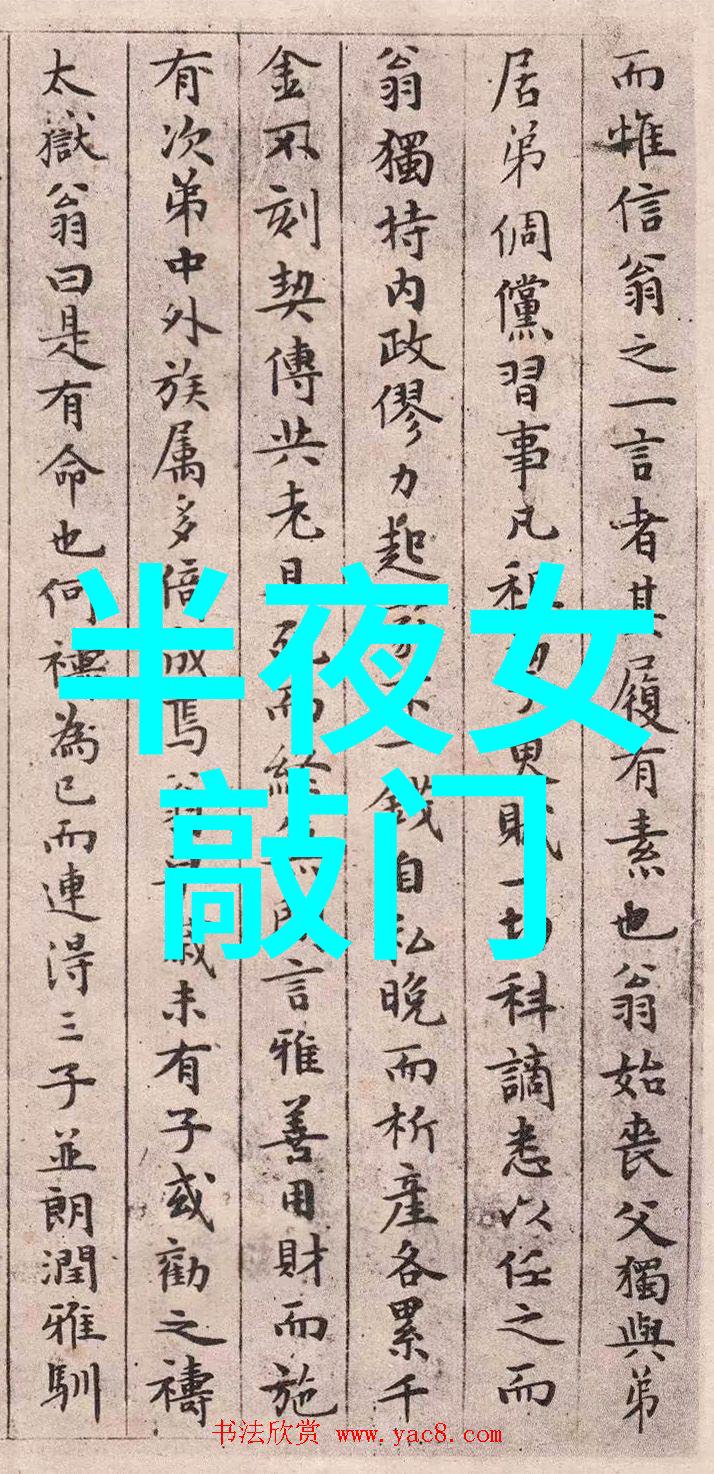 而惟信翁之一言者其履有素也翁始喪父獨與弟
居弟倜儻習事凡租更賦一切科謫悉以任之而
翁獨持内政僇力起一錢自私晚而析產各累千
金不刻契傳共老且死而言雅善用財而施
有次第中外族属多倍成焉翁歲未有子或勸之禱
太嶽翁曰是有命也何禱為已而連得三子並朗潤雅馴
半夜女
敲门
书法欣赏 www.yac8.com